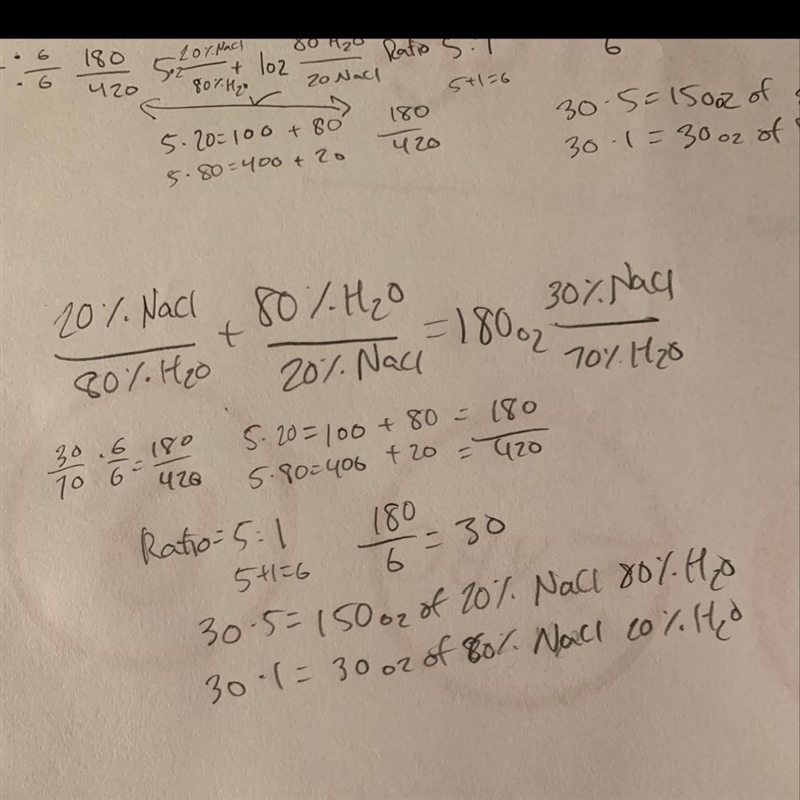 6/6 180/420 5oz 20% NaCl/80% H2O + 1oz 80 H2O/20 NaCl Ratio 5:1 6
5+1=6
5·20=100 + 80 180/420
5·80=400 + 20
30·5=150oz of
30·1=30oz of
20% NaCl/80% H2O + 80% H2O/20% NaCl = 180oz 30% NaCl/70% H2O
30/70 · 6/6 = 180/420
5·20=100 + 80 = 180
5·80=400 + 20 = 420
Ratio=5:1 180/6 = 30
5+1=6
30·5=150oz of 20% NaCl 80% H2O
30·1=30oz of 80% NaCl 20% H2O